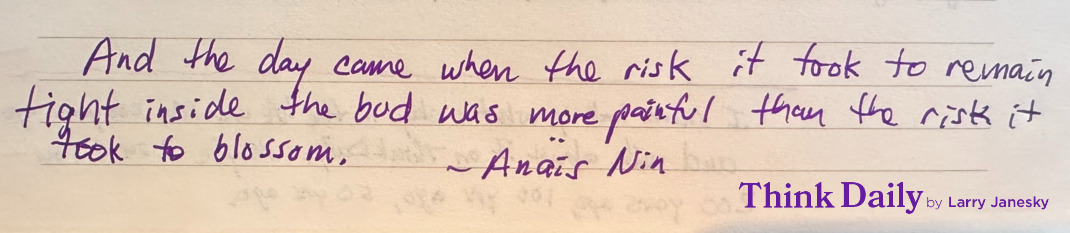 And the day came when the risk it took to remain
tight inside the bud was more painful than the risk it
took to blossom.
~ Anaïs Nin
Think Daily by Larry Janesky